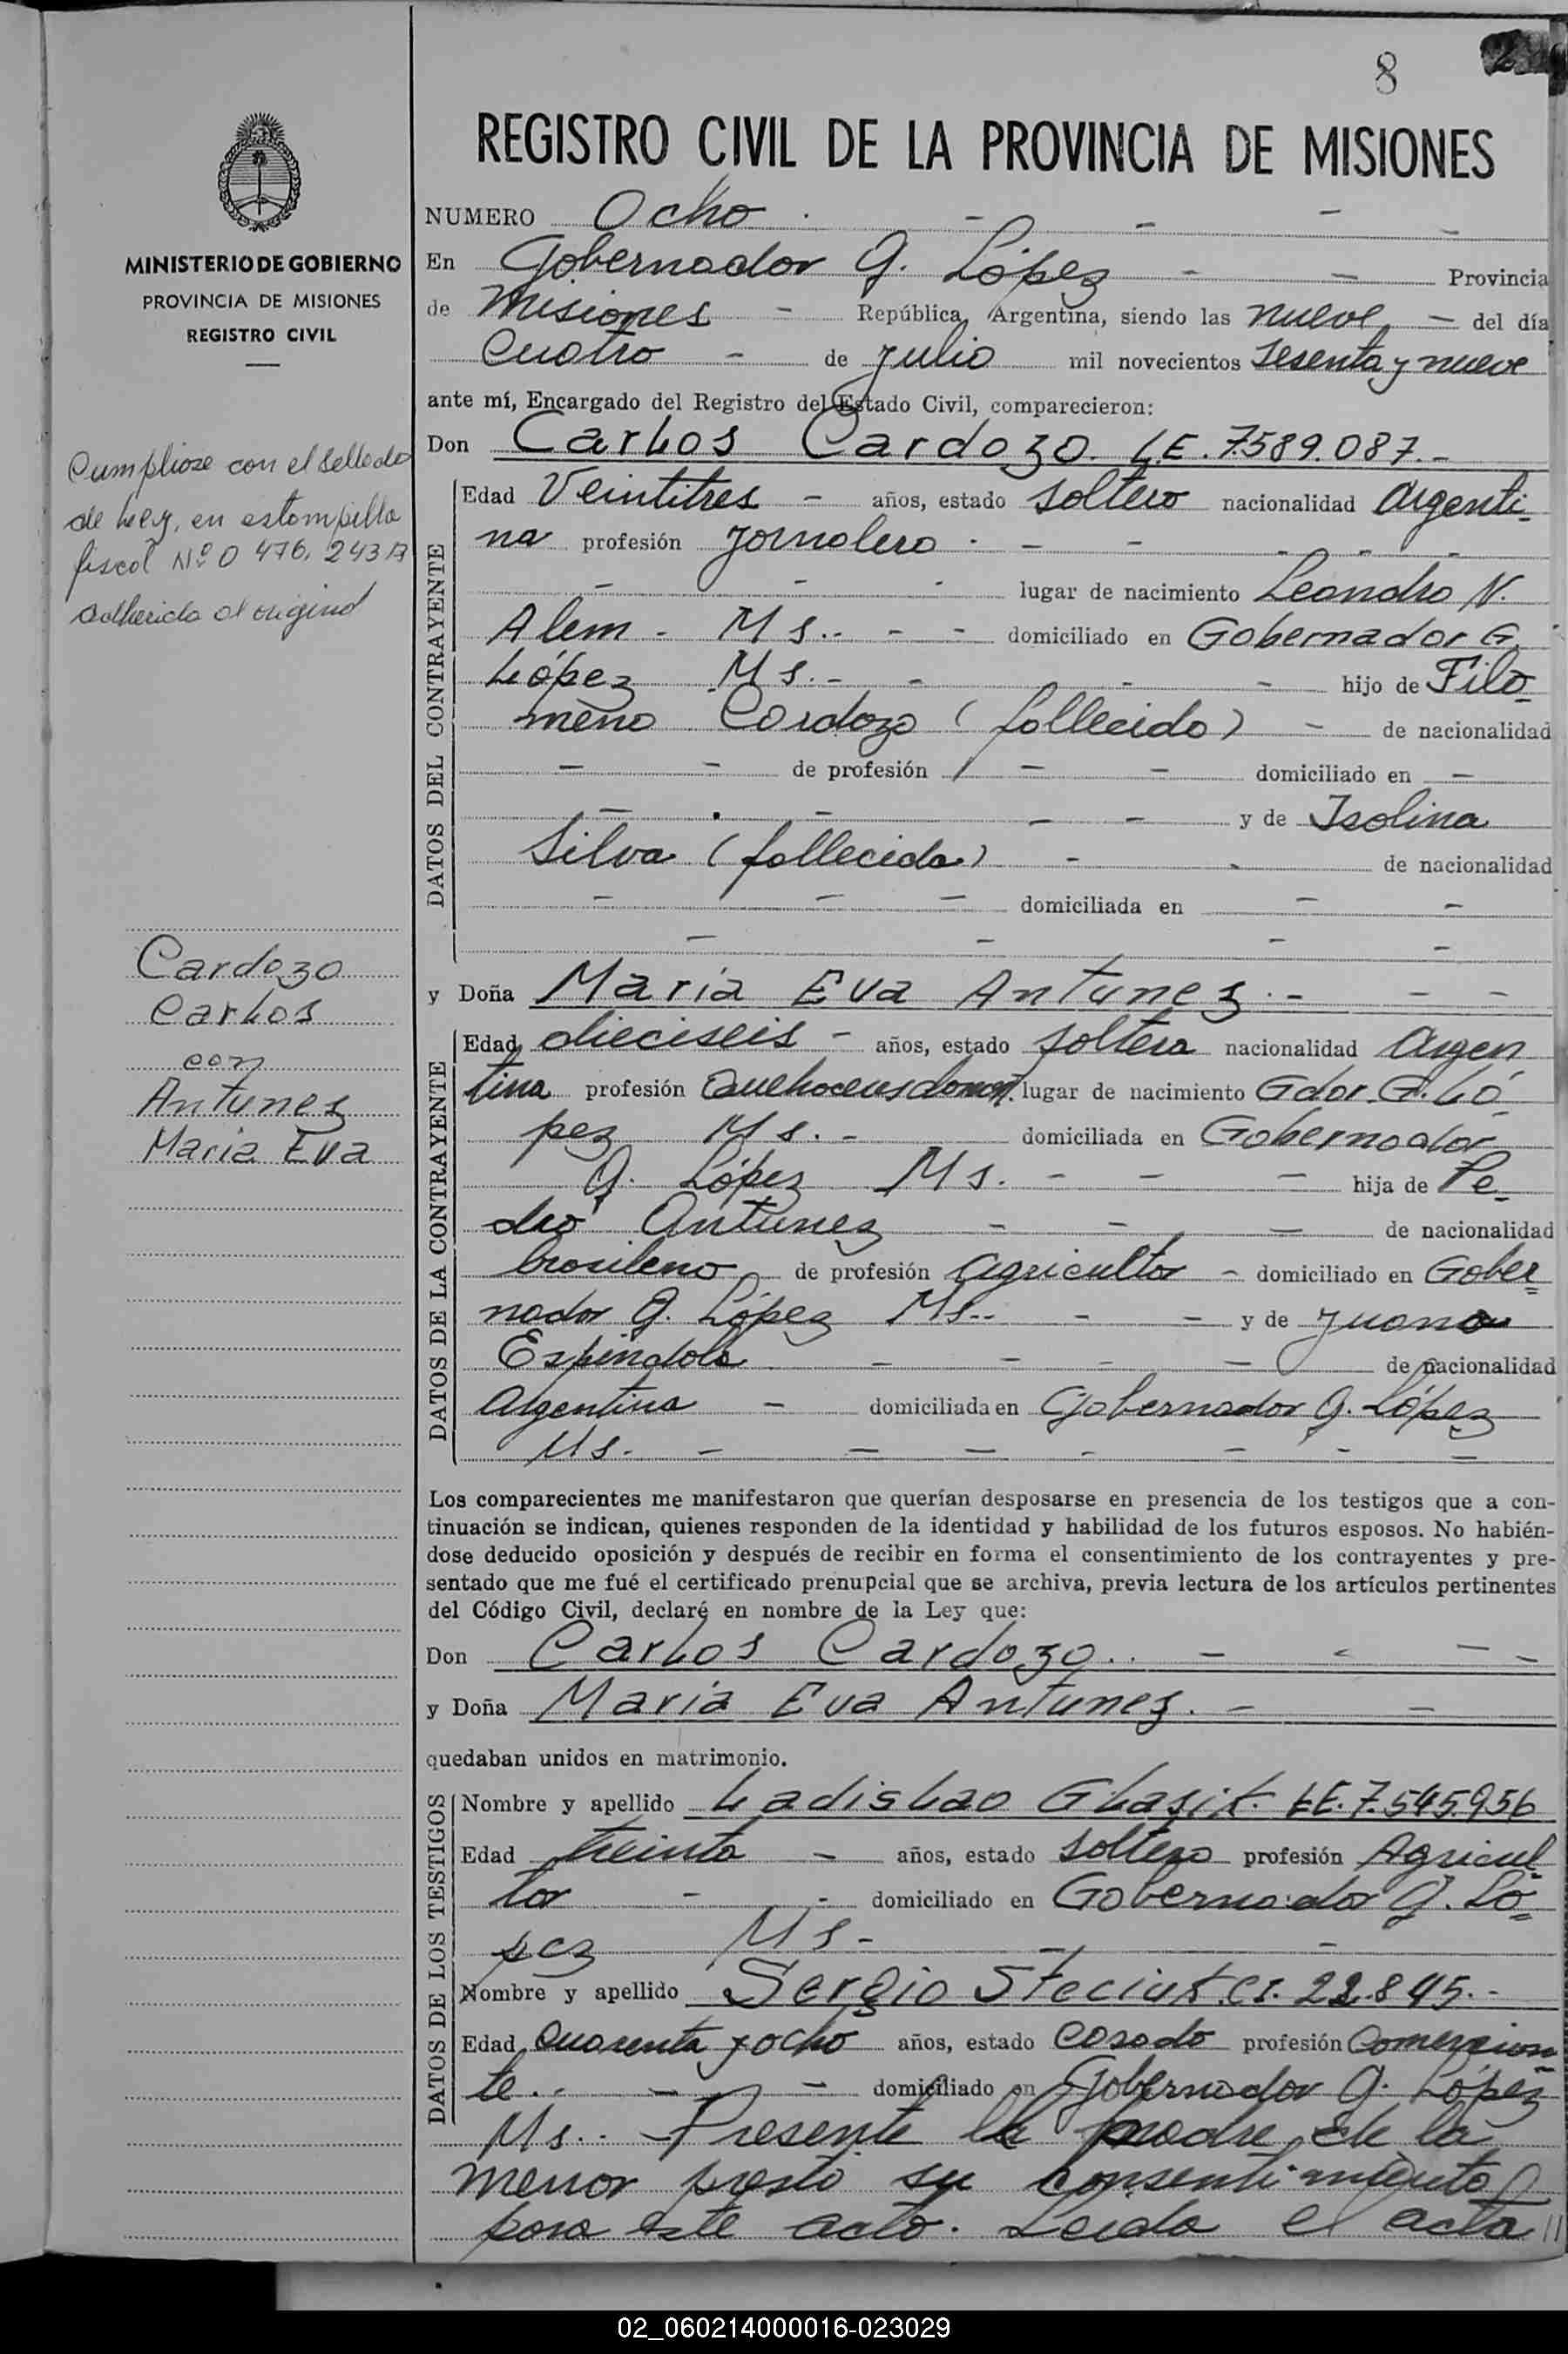 8
MINISTERIO DE GOBIERNO
PROVINCIA DE MISIONES
REGISTRO CIVIL
Cumpliose con el sellado
de Ley, en estampilla
fiscal Nº 0 476.243 A
adherida al original
Cardozo
Carlos
con
Antunez
Maria Eva
REGISTRO CIVIL DE LA PROVINCIA DE MISIONES
NUMERO Ocho . - - - -
En Gobernador G. López - - Provincia
de Misiones - República Argentina, siendo las nueve - del día
Cuatro - de Julio mil novecientos Sesenta y nueve
ante mí, Encargado del Registro del Estado Civil, comparecieron:
Don Carlos Cardozo. L.E. 7.589.087.-
DATOS DEL CONTRAYENTE
Edad Veintitres - años, estado soltero nacionalidad Argenti-
na profesión Jornalero . - - - - -
- - - lugar de nacimiento Leandro N.
Alem - Ms.. - - domiciliado en Gobernador G.
López Ms. - - - - hijo de Filo-
meno Cardozo (fallecido) - de nacionalidad
- - de profesión - - domiciliado en -
- . - - - y de Isolina
Silva (fallecida) - - de nacionalidad
- - - domiciliada en - -
- - - -
y Doña Maria Eva Antunez.- - -
DATOS DE LA CONTRAYENTE
Edad dieciseis - años, estado soltera nacionalidad Argen
tina profesión Quehaceres domest. lugar de nacimiento Gdor. G. Ló-
pez Ms. - domiciliada en Gobernador
G. López Ms. - - - hija de Pe-
dro Antunez - - - de nacionalidad
brasileno de profesión agricultor - domiciliado en Gober=
nador G. López Ms.. - - y de Juana
Espindola - - - - de nacionalidad
Argentina - domiciliada en Gobernador G. López
Ms. - - - - - - -
Los comparecientes me manifestaron que querían desposarse en presencia de los testigos que a con-
tinuación se indican, quienes responden de la identidad y habilidad de los futuros esposos. No habién-
dose deducido oposición y después de recibir en forma el consentimiento de los contrayentes y pre-
sentado que me fué el certificado prenupcial que se archiva, previa lectura de los artículos pertinentes
del Código Civil, declaré en nombre de la Ley que:
Don Carlos Cardozo.. - - - -
y Doña Maria Eva Antunez. - -
quedaban unidos en matrimonio.
DATOS DE LOS TESTIGOS
Nombre y apellido Ladislao Glasik. L.E. 7.545.956
Edad treinta - años, estado soltero profesión Agricul-
tor - - domiciliado en Gobernador G. Ló=
pez Ms - - -
Nombre y apellido Sergio Steciuk. C.I. 22.845.-
Edad Cuarenta y ocho años, estado Casado profesión Comercian=
te.. - - domiciliado en Gobernador G. López
Ms.. - Presente la madre de la
menor prestó su consentimiento
para este acto. Leida el acta //
02_060214000016-023029